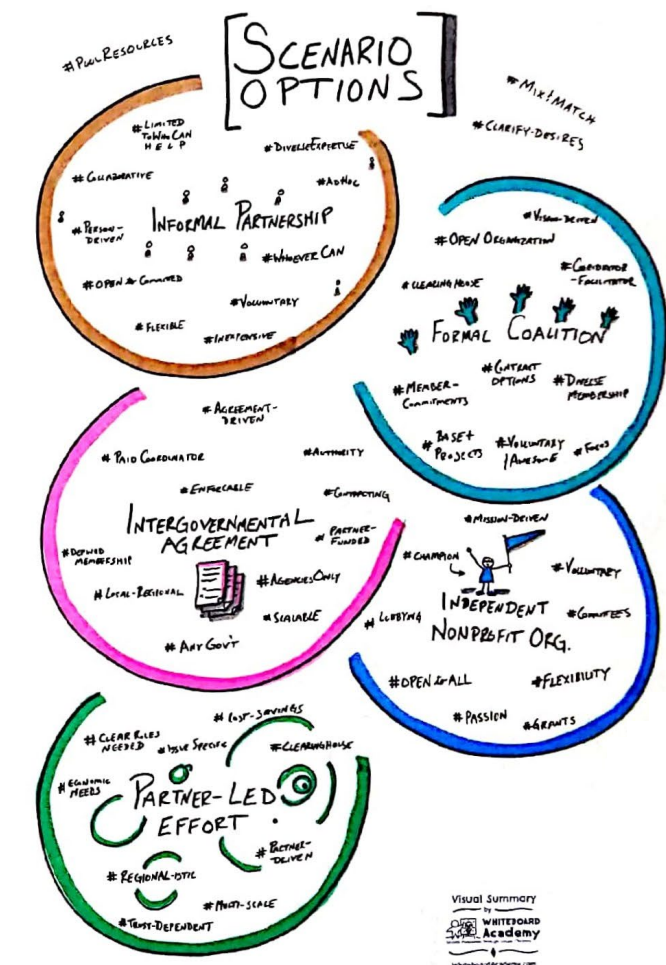 [SCENARIO
OPTIONS]
#MIX & MATCH
#CLARIFY-DESIRES
#LIMITED
TO WHO CAN
HELP
#DIVERSE EXPERTISE
#COLLABORATIVE
#AD HOC
#PERSON-
DRIVEN
INFORMAL PARTNERSHIP
#WHOEVER CAN
#OPEN &
#VOLUNTARY
#FLEXIBLE
#INEXPENSIVE
#VISION-DRIVEN
#OPEN ORGANIZATION
#COORDINATOR
-FACILITATOR
#CLEARING HOUSE
FORMAL COALITION
#MEMBER-
COMMITMENTS
#CONTRACT
OPTIONS
#DIVERSE
MEMBERSHIP
#BASE+
PROJECTS
#VOLUNTARY
/AWESOME
#FOCUS
#AGREEMENT-
DRIVEN
#PAID COORDINATOR
#AUTHORITY
#ENFORCABLE
#CONTRACTING
INTERGOVERNMENTAL
AGREEMENT
#PARTNER-
FUNDED
#DEFINED
MEMBERSHIP
#LOCAL-REGIONAL
#AGENCIES ONLY
#SCALABLE
#ANY GOV'T
#MISSION-DRIVEN
#CHAMPION
#VOLUNTARY
INDEPENDENT
NONPROFIT ORG.
#LOBBYING
#COMMITTEES
#OPEN TO ALL
#FLEXIBILITY
#PASSION
#GRANTS
#COST-SAVINGS
#CLEAR ROLES
NEEDED
#ISSUE SPECIFIC
#CLEARINGHOUSE
#ECONOMIC
NEEDS
PARTNER-LED
EFFORT
#PARTNER-
DRIVEN
#REGIONAL-ISTIC
#MULTI-SCALE
#TRUST-DEPENDENT
Visual Summary
by
WHITEBOARD
Academy
whiteboardacademy.com